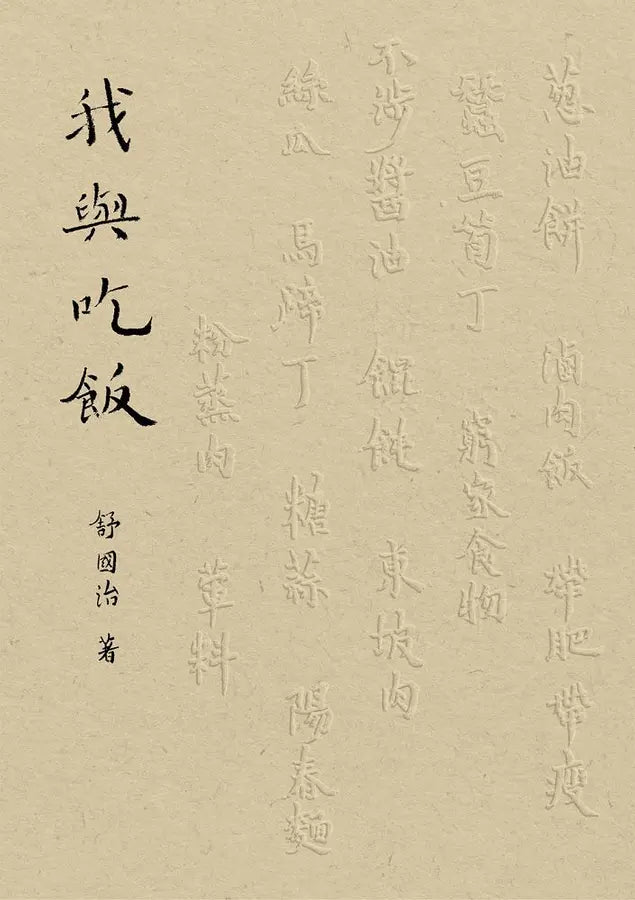 蔥油餅 滷肉飯 帶肥帶瘦
蠶豆筍丁 窮家食物
不涉醬油 餛飩 東坡肉
絲瓜 馬蹄丁 糖蒜 陽春麵
粉蒸肉 葷料
我與吃飯
舒國治 著